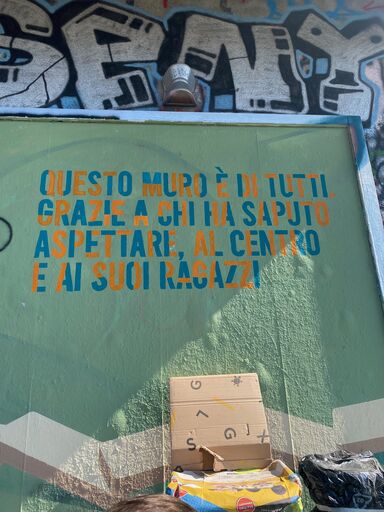 QUESTO MURO È DI TUTTI.
GRAZIE A CHI HA SAPUTO
ASPETTARE, AL CENTRO
E AI SUOI RAGAZZI